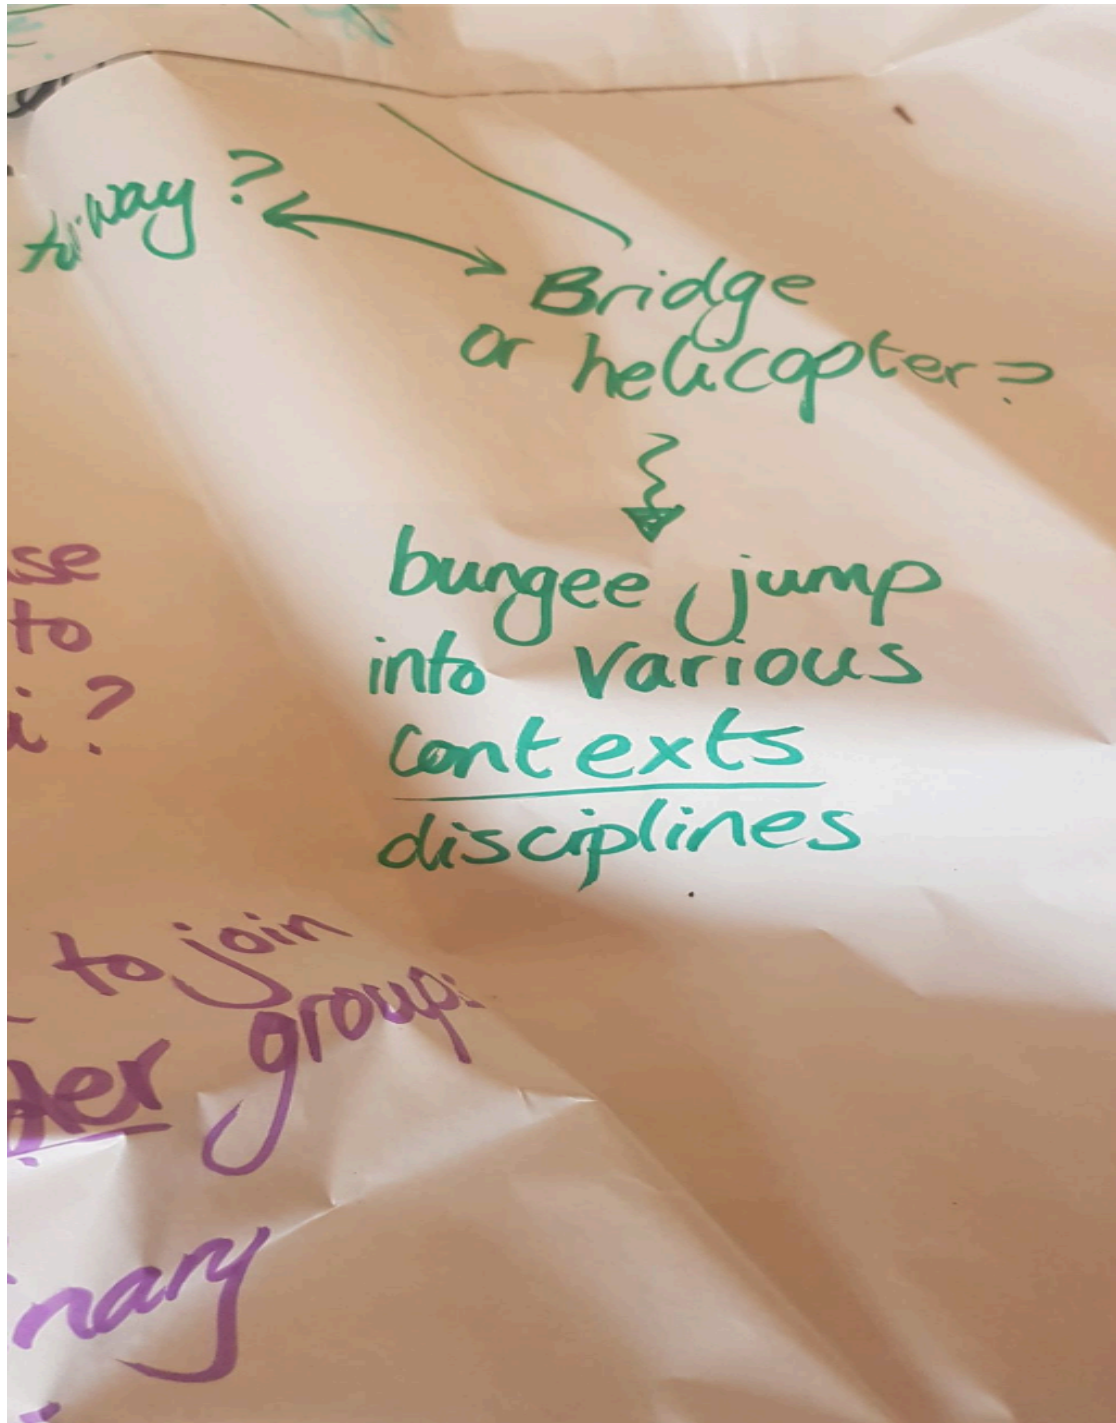 way?
Bridge
or helicopter?
bungee jump
into various
contexts
disciplines
se
to
i?
to join
group:
nary